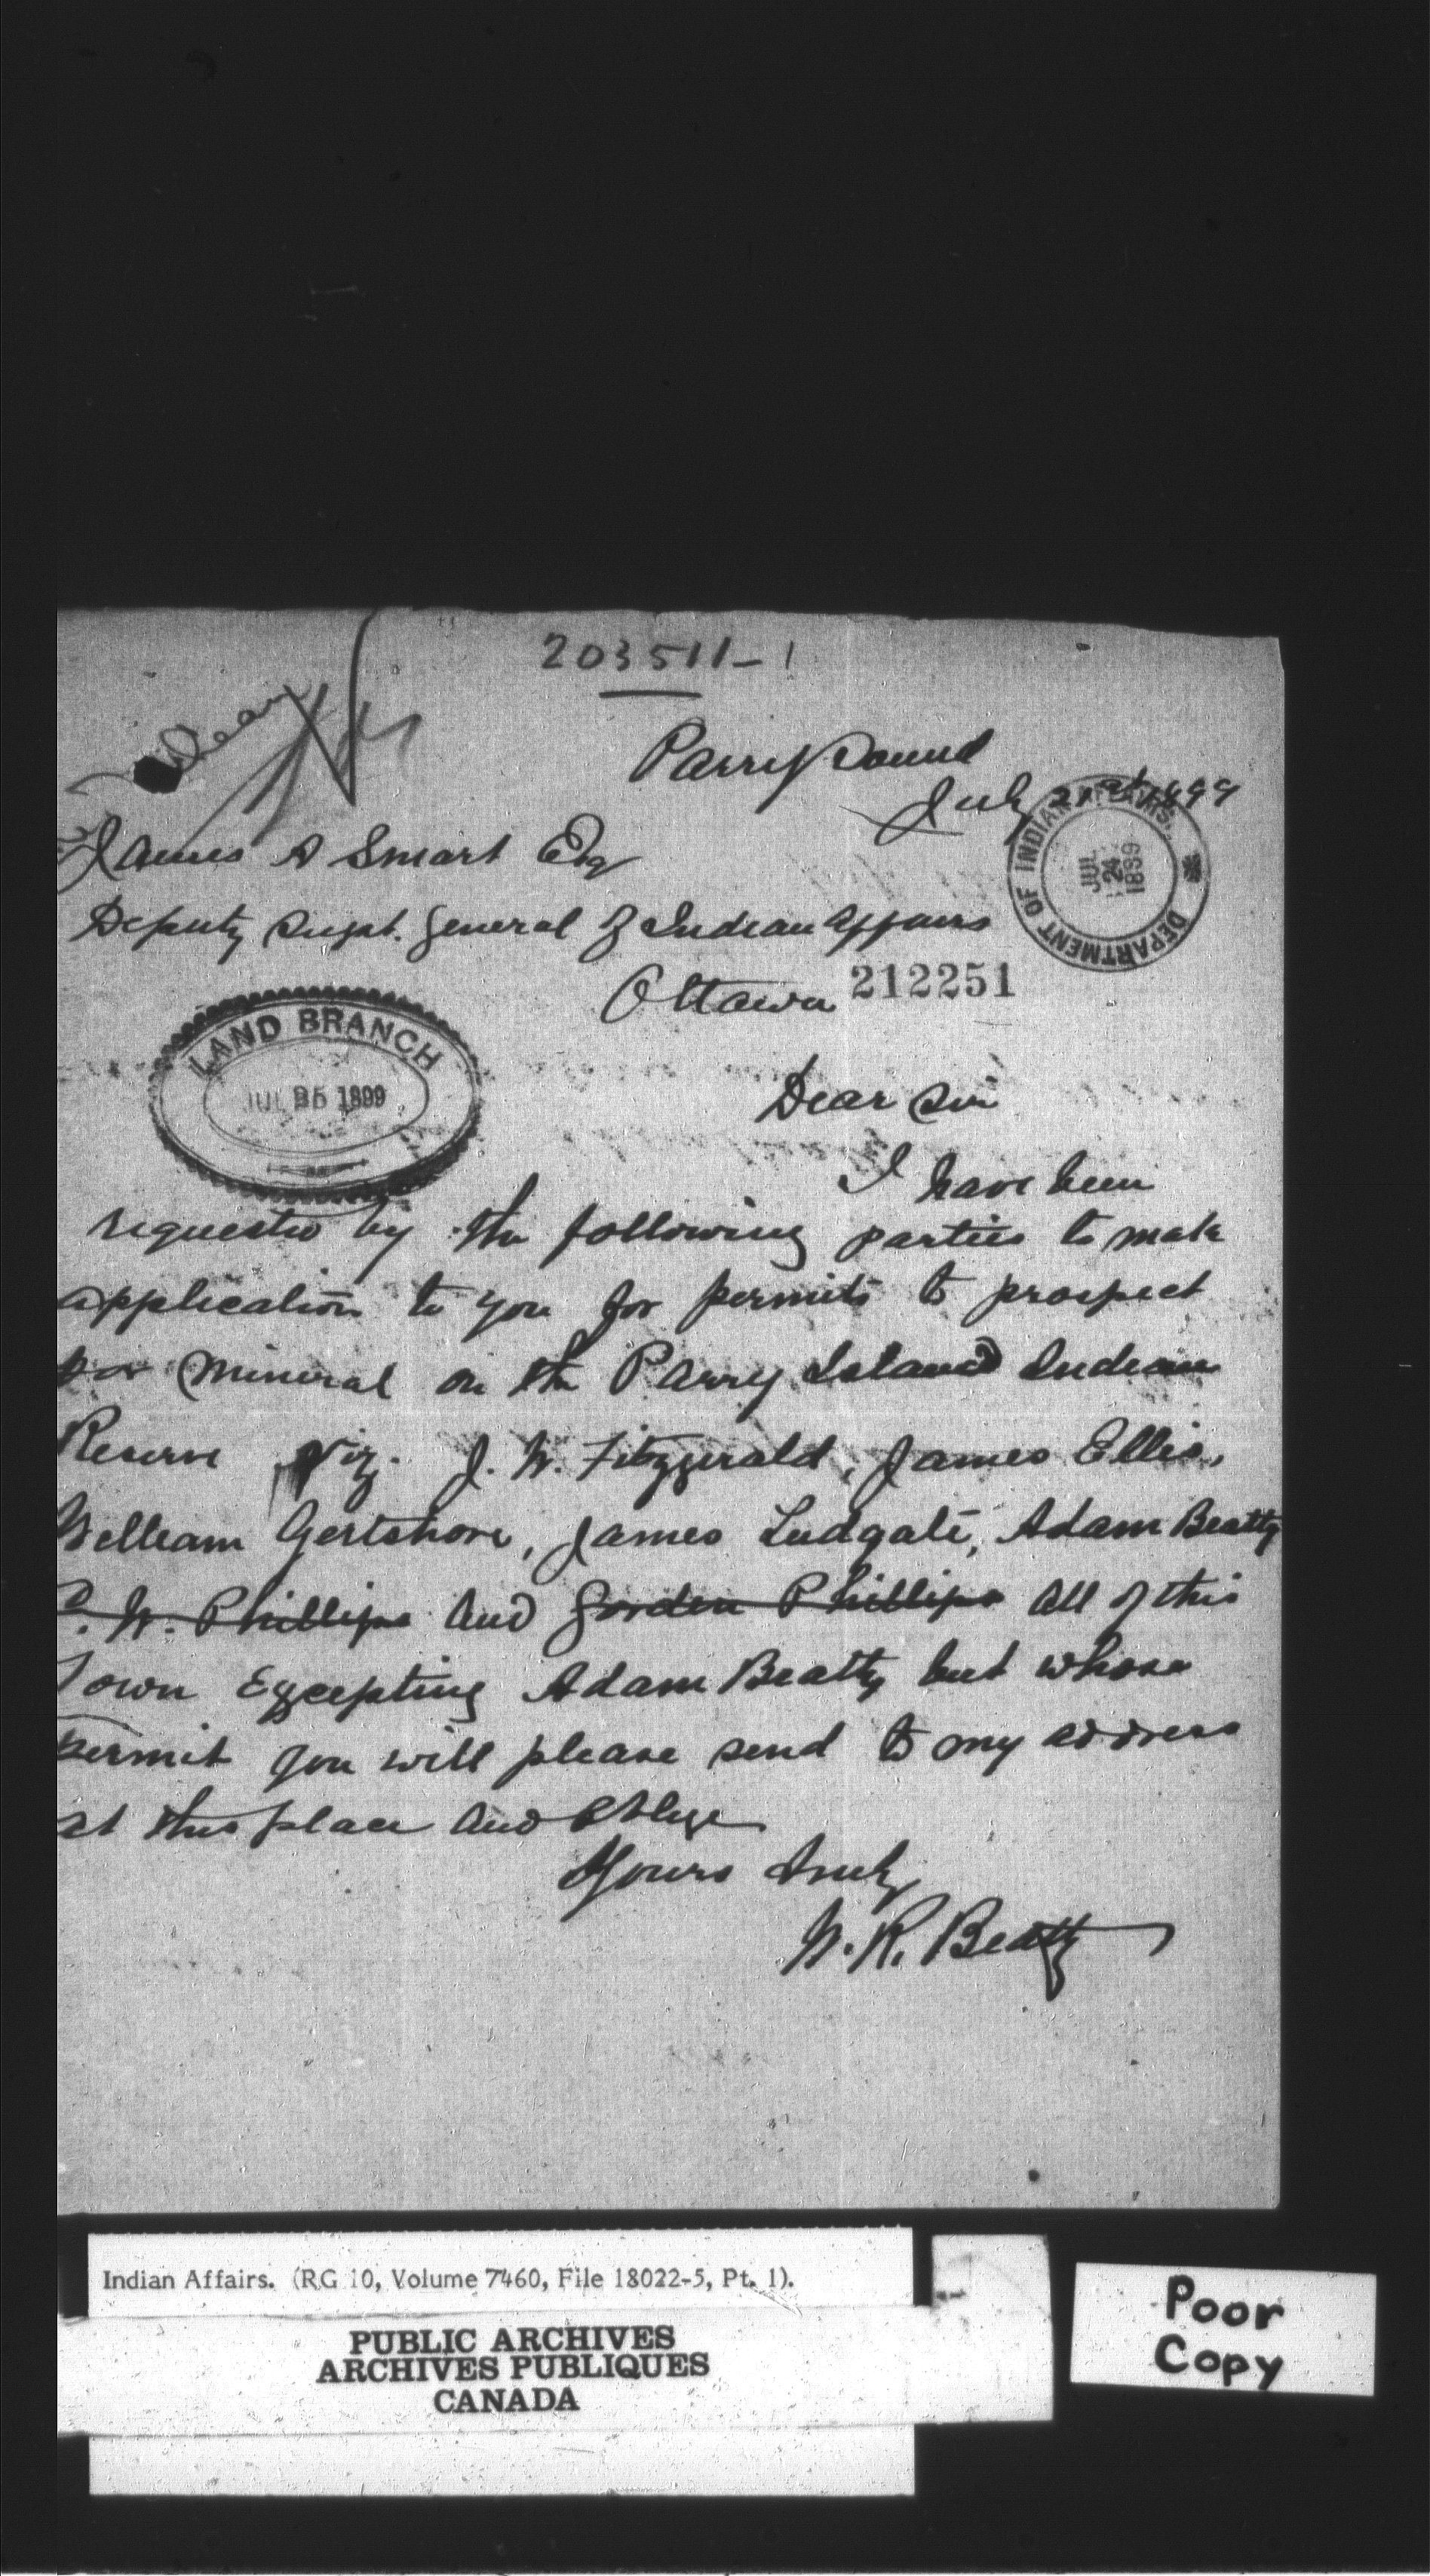 203511-1
Parry Sound
July 21st 1899
James A Smart Esq
Deputy Supt. General of Indian Affairs
DEPARTMENT OF INDIAN AFFAIRS.
JUL 24 1899
Ottawa
212251
LAND BRANCH
JUL 25 1899
Dear Sir
I have been
requested by the following parties to make
application to you for permits to prospect
for Mineral on the Parry Island Indian
Reserve Viz. J. W. Fitzgerald, James Ellis,
William Gertshore, James Ludgate, Adam Beatty
W. Phillips and Gorden Phillips all of this
Town Excepting Adam Beatty but whose
permit you will please send to my address
at this place and Oblige
Yours truly
W. R. Beatty
Indian Affairs. (RG 10, Volume 7460, File 18022-5, Pt. 1).
PUBLIC ARCHIVES
ARCHIVES PUBLIQUES
CANADA
Poor
Copy